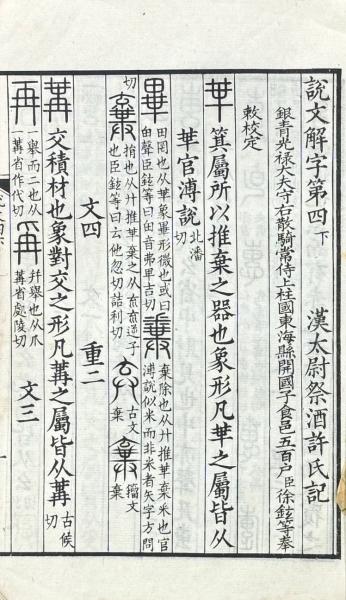 說文解字第四下 漢太尉祭酒許氏記
銀青光祿大夫守右散騎常侍上柱國東海縣開國子食邑五百戶臣徐鉉等奉
敕校定
𠦒 箕屬所以推棄之器也象形凡𠦒之屬皆从
𠦒官溥說 北潘切
畢 田罔也从𠦒象畢形微也或曰甶聲臣鉉等曰甶音弗卑吉切 糞 棄除也从廾推𠦒棄釆也官溥說似米而非米者矢字方問
切 棄 捐也从廾推𠦒棄之从𠫓𠫓逆子也臣鉉等曰𠫓他忽切詰利切 弃 古文棄 棄 籒文棄
文四 重二
冓 交積材也象對交之形凡冓之屬皆从冓 古候切
再 一舉而二也从一冓省作代切 爯 幷舉也从爪冓省處陵切 文三